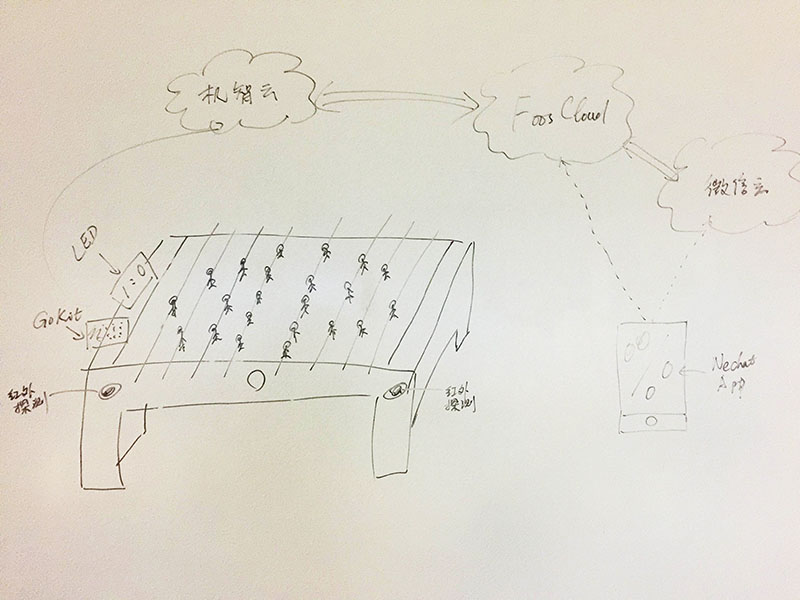 机智云
Foos Cloud
微信云
LED
1:0
GoKit
红外
探测
红外
探测
Wechat
App